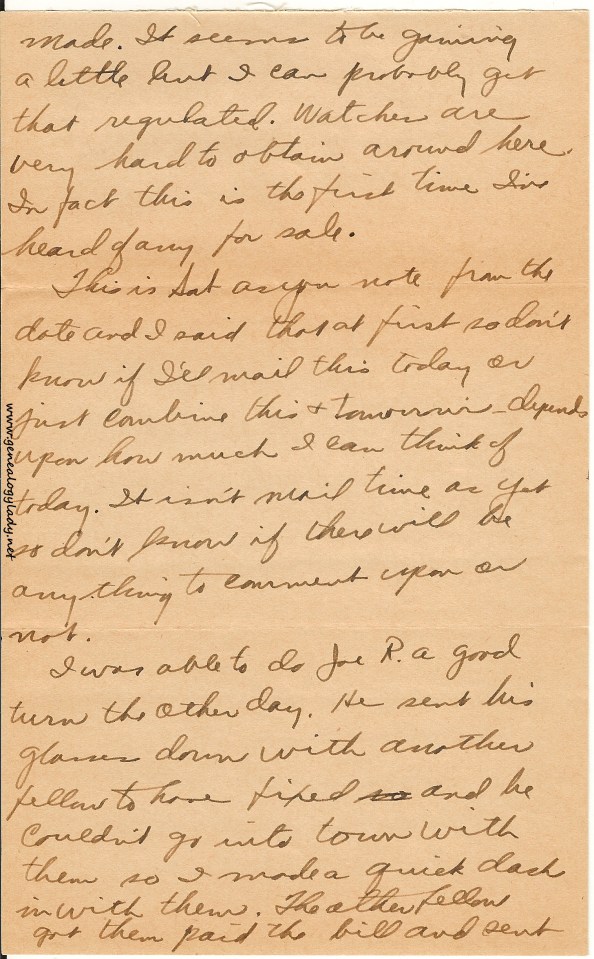 made. It seems to be gaining
a little but I can probably get
that regulated. Watches are
very hard to obtain around here.
In fact this is the first time I've
heard of any for sale.
This is Sat as you note from the
date and I said that at first so don't
know if I'll mail this today or
just combine this + tomorrow - depends
upon how much I can think of
today. It isn't mail time as yet
so don't know if there will be
anything to comment upon or
not.
I was able to do Joe R. a good
turn the other day. He sent his
glasses down with another
fellow to have fixed so and he
couldn't go into town with
them so I made a quick dash
in with them. The other fellow
got them paid the bill and sent
www.genealogylady.net